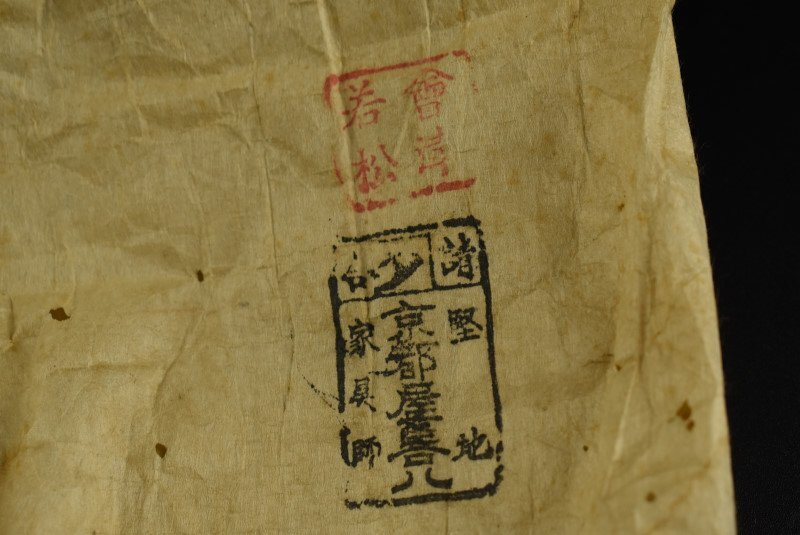 會津
若松
請合
堅地
京都屋善八
家具師